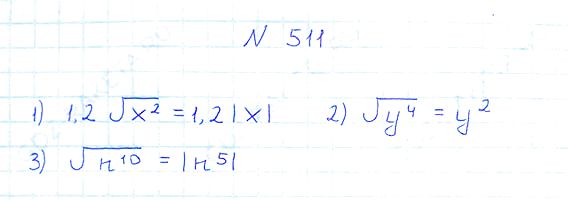 N 511
1) 1,2 √x² = 1,2|x| 2) √y⁴ = y²
3) √n¹⁰ = |n⁵|